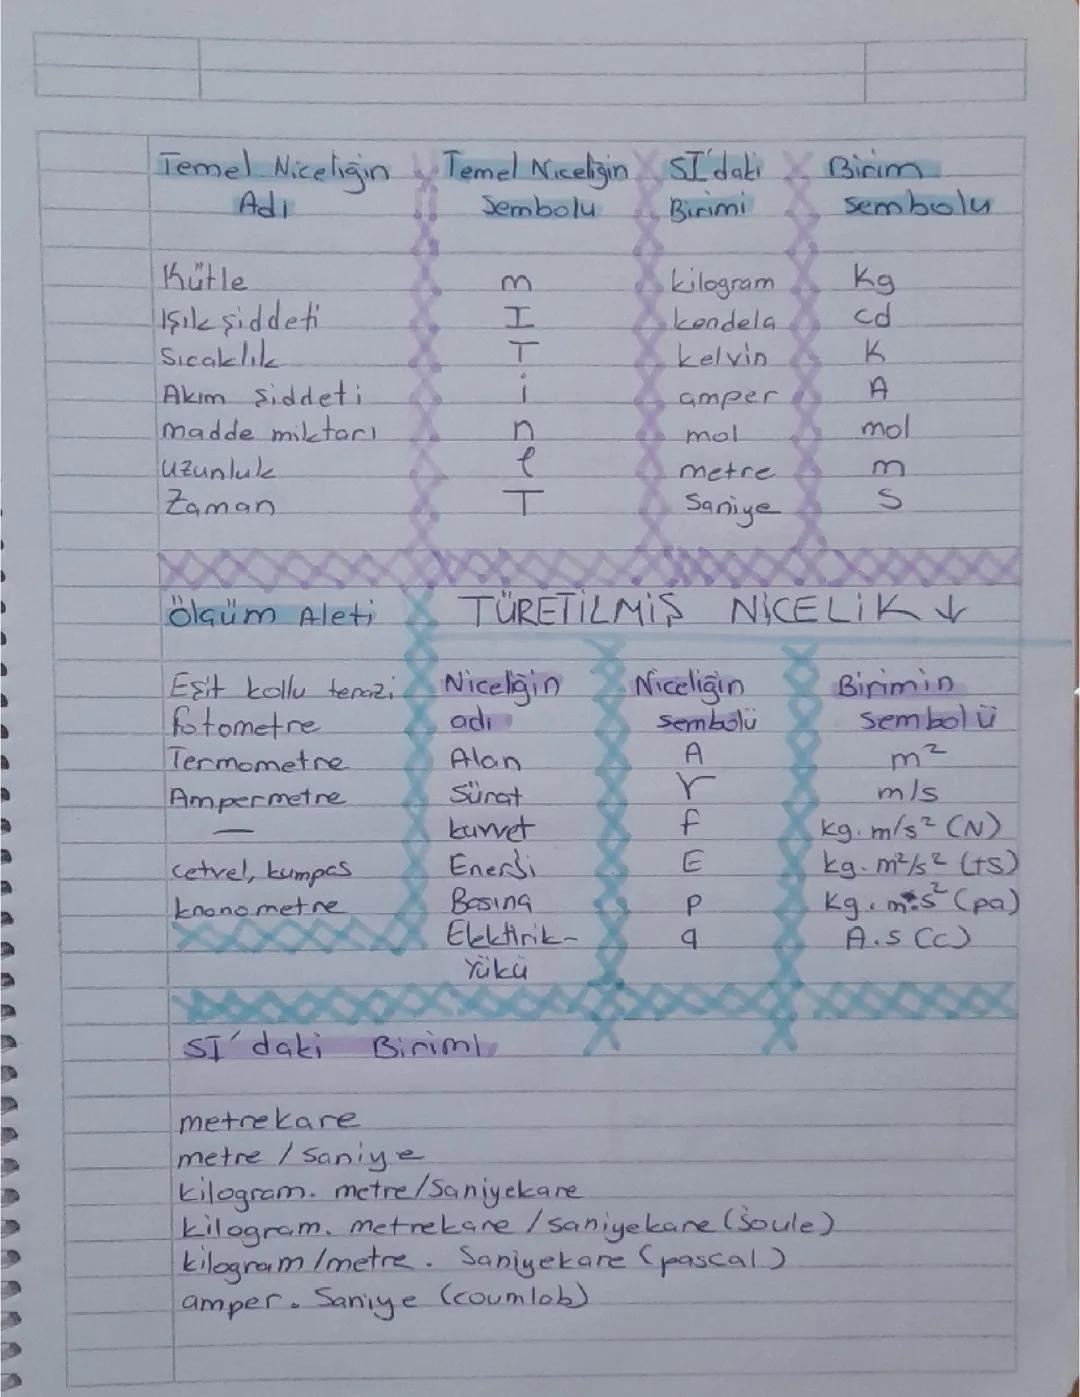 Temel Niceliğin Temel Niceliğin SI'daki Birim
Adı Sembolu Birimi sembolu
Kütle m kilogram Kg
Işık şiddeti I kendela cd
Sıcaklık T kelvin K
Akım şiddeti i amper A
madde miktarı n mol mol
uzunluk l metre m
Zaman T Saniye S
Ölçüm Aleti TÜRETİLMİŞ NİCELİK ↓
Eşit kollu terazi Niceliğin Niceliğin Birimin
fotometre adı sembolü sembolü
Termometre Alan A m²
Ampermetre Sürat V m/s
— kuvvet f kg.m/s² (N)
cetvel, kumpas Enerji E kg.m²/s² (ts)
kronometre Basınç P Kg.m.s² (pa)
Elektirik- q A.s (c)
Yükü
SI'daki Birimi
metrekare
metre / Saniye
kilogram. metre/Saniyekare
kilogram. metrekare /saniyekare (Joule)
kilogram/metre. Saniyekare (pascal)
amper. Saniye (coumlob)